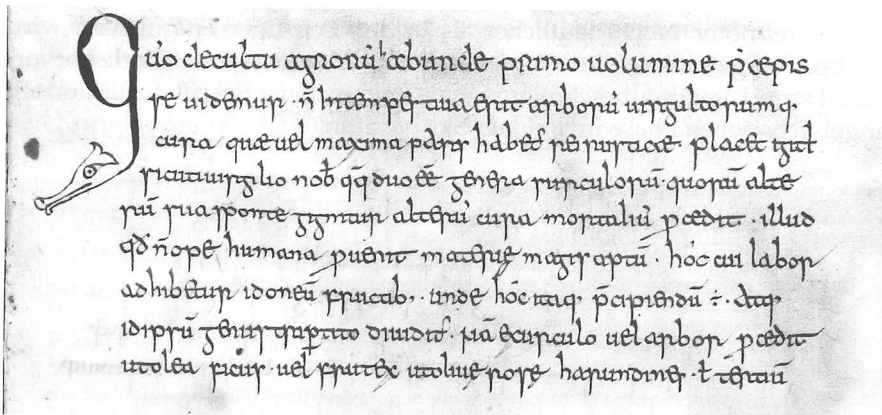 Quō de cultu agrorū abunde primo uolumine p̄cepis
se uidemur · n̄ intempestiua erit arborū uirgultorumq·
cura quae uel maxima pars habet̄ rei rusticae · placet igit̄
sicuti uirgilio nob̄ q̄q duo eē genera surculorū · quorū alte
rū sua sponte gignitur alterū cura mortaliū ꝓcedit · illud
qđ n̄ ope humana ꝓuenit materie magis aptū · hóc cui labor
adhibetur idoneū fructib; · unde hóc itaq· p̄cipiendū ÷ · Atq·
idipsū genus tripertito diuidit̄ · nā e surculo uel arbor ꝓcedit
ut olea ficus · uel frutex ut oliue rose harundines · ł tertiū